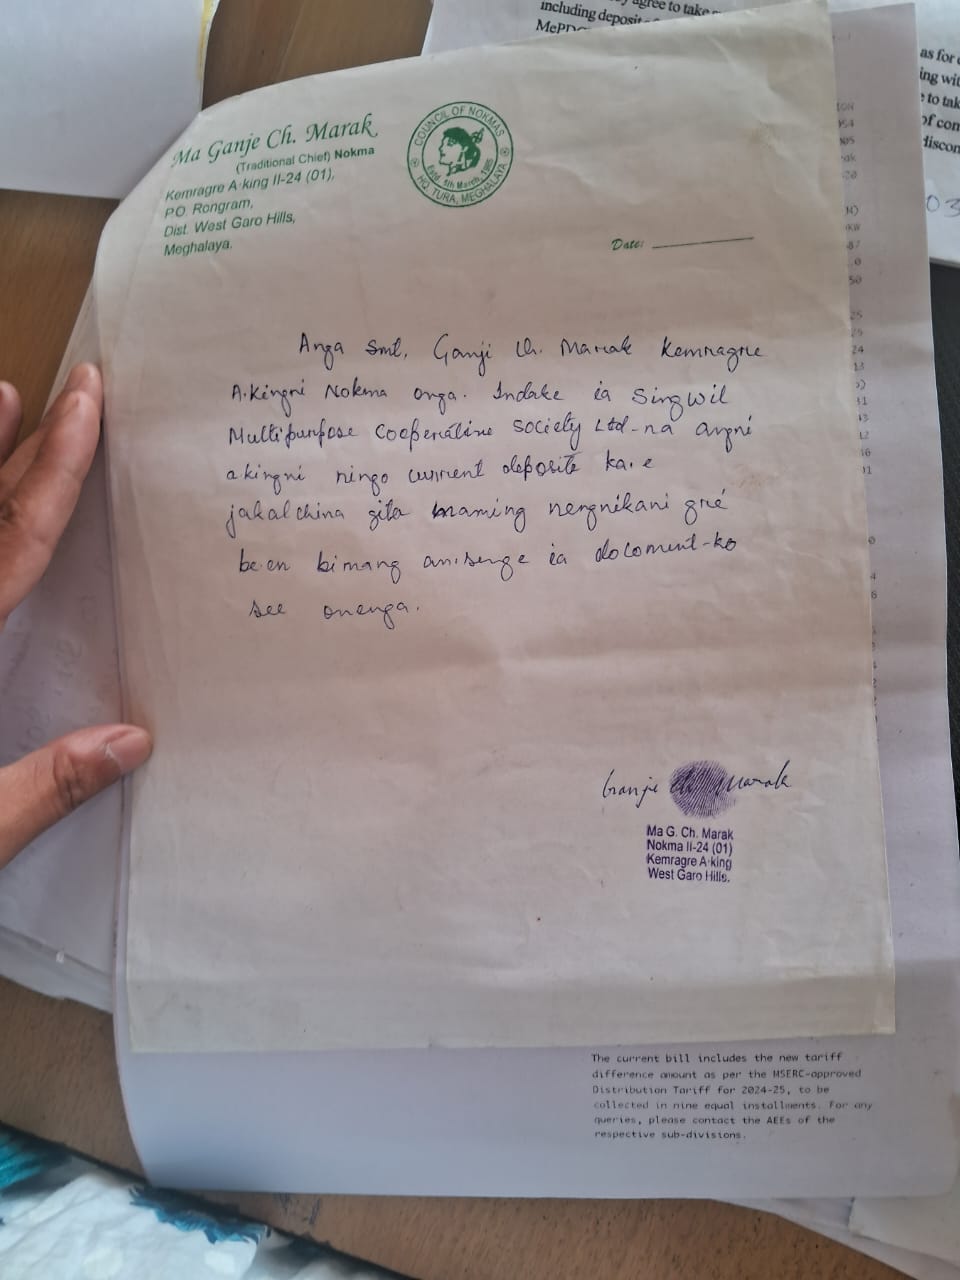 agree to take
including deposit
MePDC
as for
ing wit
to tak
of con
discon
03
Ma Ganje Ch. Marak
(Traditional Chief) Nokma
Kemragre A·king II-24 (01),
P.O. Rongram,
Dist. West Garo Hills,
Meghalaya.
COUNCIL OF NOKMAS
Estd. 5th March, 1985
HQ. TURA, MEGHALAYA
Date:
Anga Smt, Ganji Ch. Marak Kemragre
A·kingni Nokma onga. Indake ia Singwil
Multipurpose Cooperative Society Ltd-na angni
a·kingni ningo current deposite ka·e
jakalchina gita maming nengnikani gri
be·en bimang an·senge ia document-ko
see onenga.
Ganje Ch Marak
Ma G. Ch. Marak
Nokma II-24 (01)
Kemragre A·king
West Garo Hills.
The current bill includes the new tariff
difference amount as per the MSERC-approved
Distribution Tariff for 2024-25, to be
collected in nine equal installments. For any
queries, please contact the AEEs of the
respective sub-divisions.